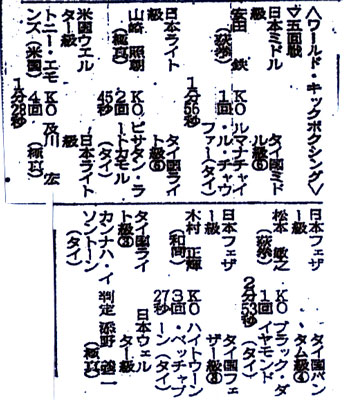 〈ワールド・キックボクシング〉
▽五回戦
日本ミドル タイ国ミド
級 ル級⑥
鉄 KO ルマナチャイ
1回 ・ル・チャウ
1分56秒 ファー(タイ)
日本ライト タイ国ライ
級 ト級⑤
山崎 照朝 KO ピサダン・ラ
(極真) 2回 ートカモル
45秒 (タイ)
米国ウエル 日本ライト
ター級 級
トニー・エモ KO 及川 宏
ンズ(米国) 4回 (極真)
1分28秒
日本フェザ タイ国バン
ー級 タム級④
松本 敏之 KO ブラック・ダ
1回 イヤモンド
2分53秒 (タイ)
日本フェザ タイ国フェ
ー級 ザー級③
木村 正輝 KO ハイトウーン
3回 ・ペッチャブ
27秒 ーン(タイ)
タイ国ライ 日本ウェル
ト級③ ター級
カンナハ・イ 判定 添野 義二
ソントーン (極真)
(タイ)